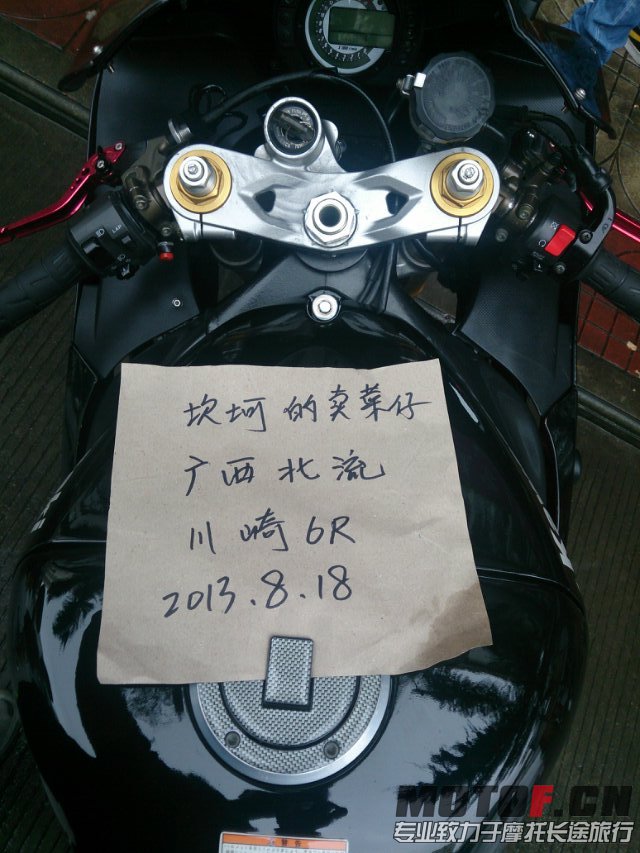 坎坷的卖菜仔
广西北流
川崎6R
2013.8.18
警告
MOTOF.CN
专业致力于摩托长途旅行